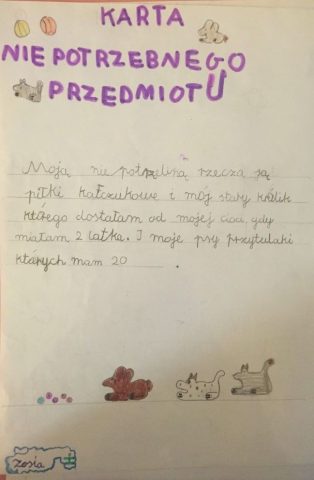 KARTA
NIE POTRZEBNEGO
PRZEDMIOTU
Moją nie potrzebną rzeczą są
piłki kałczukowe i mój stary królik
którego dostałam od mojej cioci gdy
miałam 2 latka. I moje psy przytulaki
których mam 20.
zosia